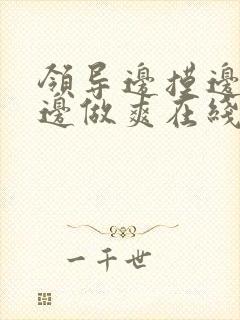 领导边摸边
边做爽在线
一千世